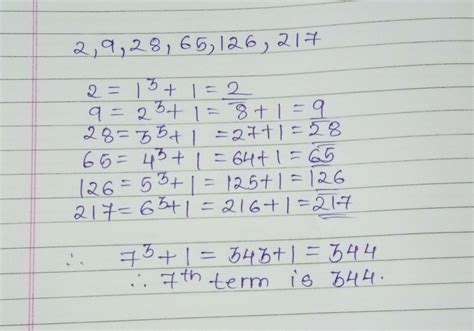 2, 9, 28, 65, 126, 217
2 = 1³ + 1 = 2
9 = 2³ + 1 = 8 + 1 = 9
28 = 3³ + 1 = 27 + 1 = 28
65 = 4³ + 1 = 64 + 1 = 65
126 = 5³ + 1 = 125 + 1 = 126
217 = 6³ + 1 = 216 + 1 = 217
∴ 7³ + 1 = 343 + 1 = 344
∴ 7th term is 344.